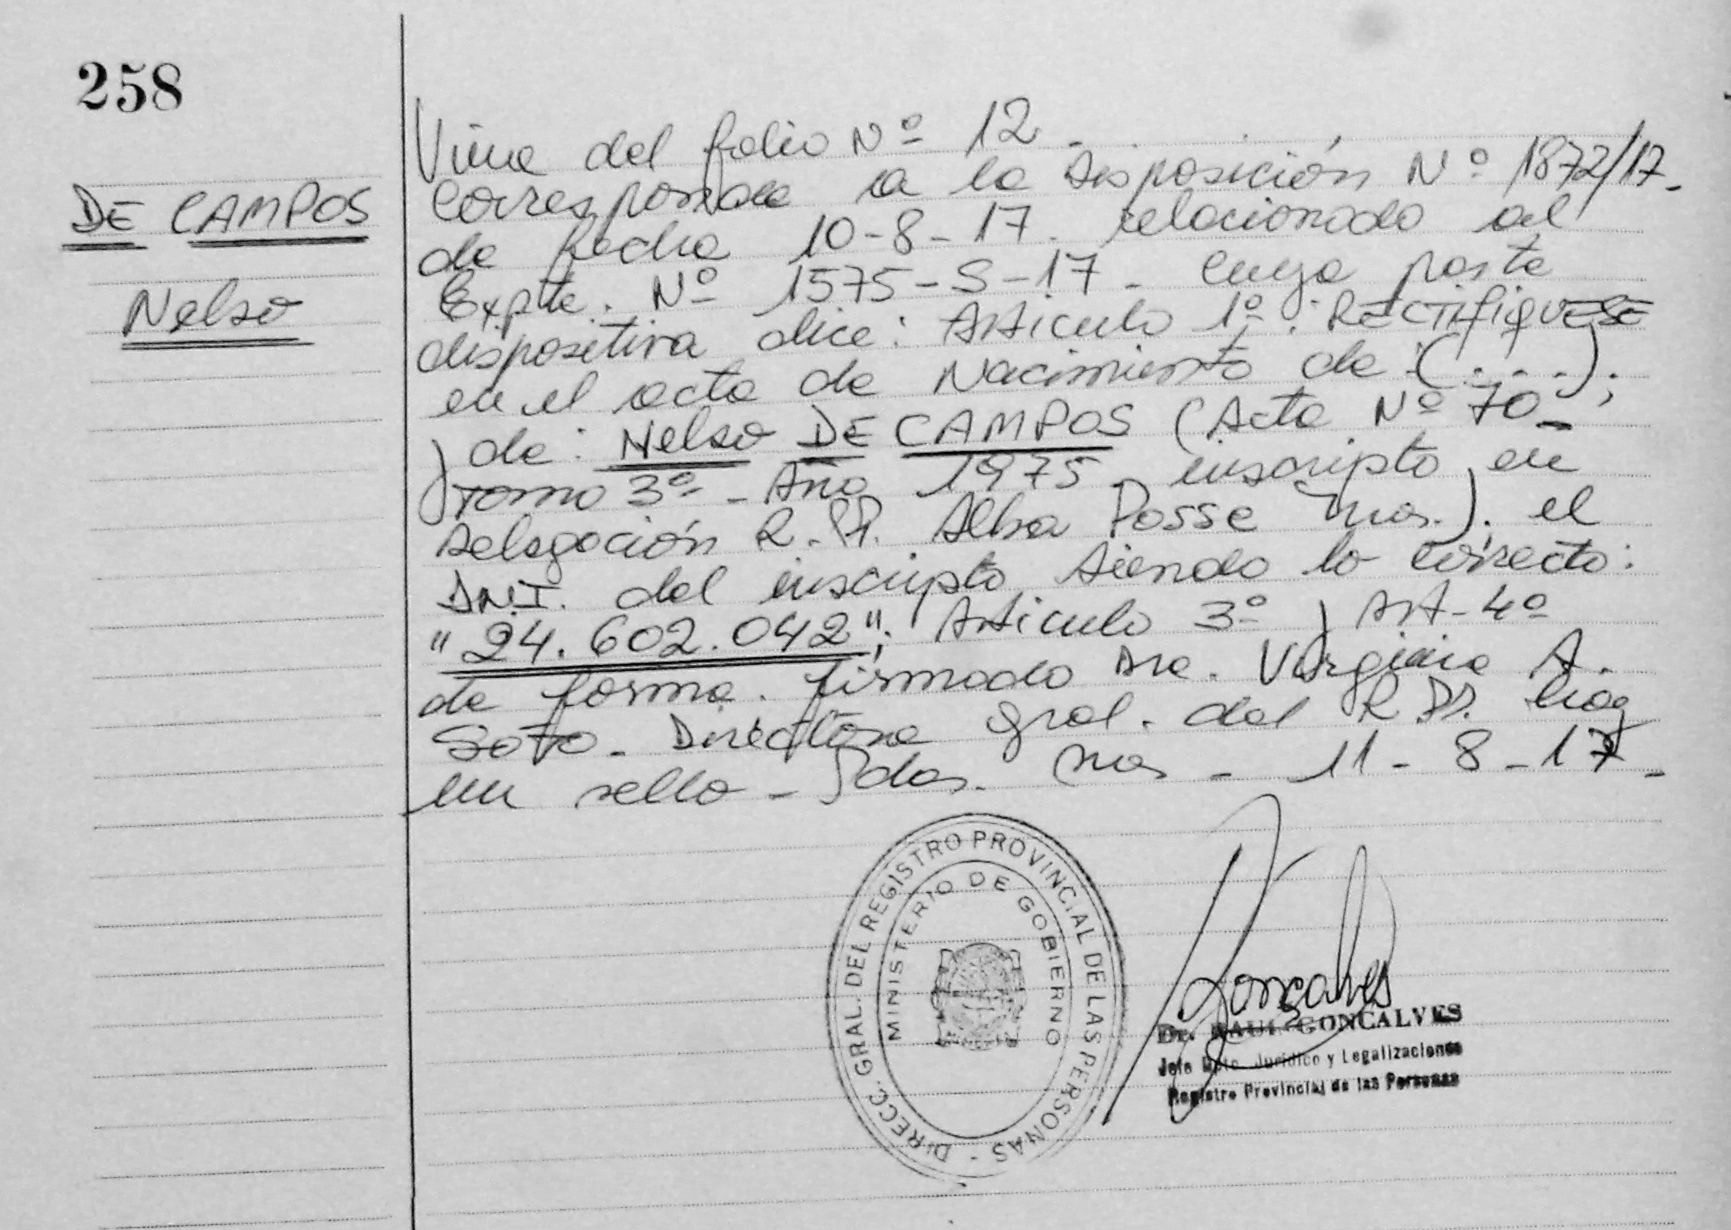 258
DE CAMPOS
Nelso
Viene del folio Nº 12.
Corresponde a la Disposición Nº 1872/17.
de fecha 10-8-17. relacionado al
Expte. Nº 1575-S-17. cuya parte
dispositiva dice: Articulo 1º: RECTIFIQUESE
en el acta de Nacimiento de (....);
de: Nelso DE CAMPOS (Acta Nº 70-
Tomo 3º- Año 1975. inscripto en
Delegación R.P.P. Alba Posse Mnes.). el
DNI. del inscripto siendo lo correcto:
"24.602.042"; Articulo 3º Art-4º
de forma. firmado Dra. Virginia A.
Soto. Directora Gral. del R.P.P. hay
un sello - Pdas. Mnes - 11-8-17-
DIRECC. GRAL. DEL REGISTRO PROVINCIAL DE LAS PERSONAS -
MINISTERIO DE GOBIERNO
Goncalves
Dr. RAUL GONCALVES
Jefe Dpto. Jurídico y Legalizaciones
Registro Provincial de las Personas